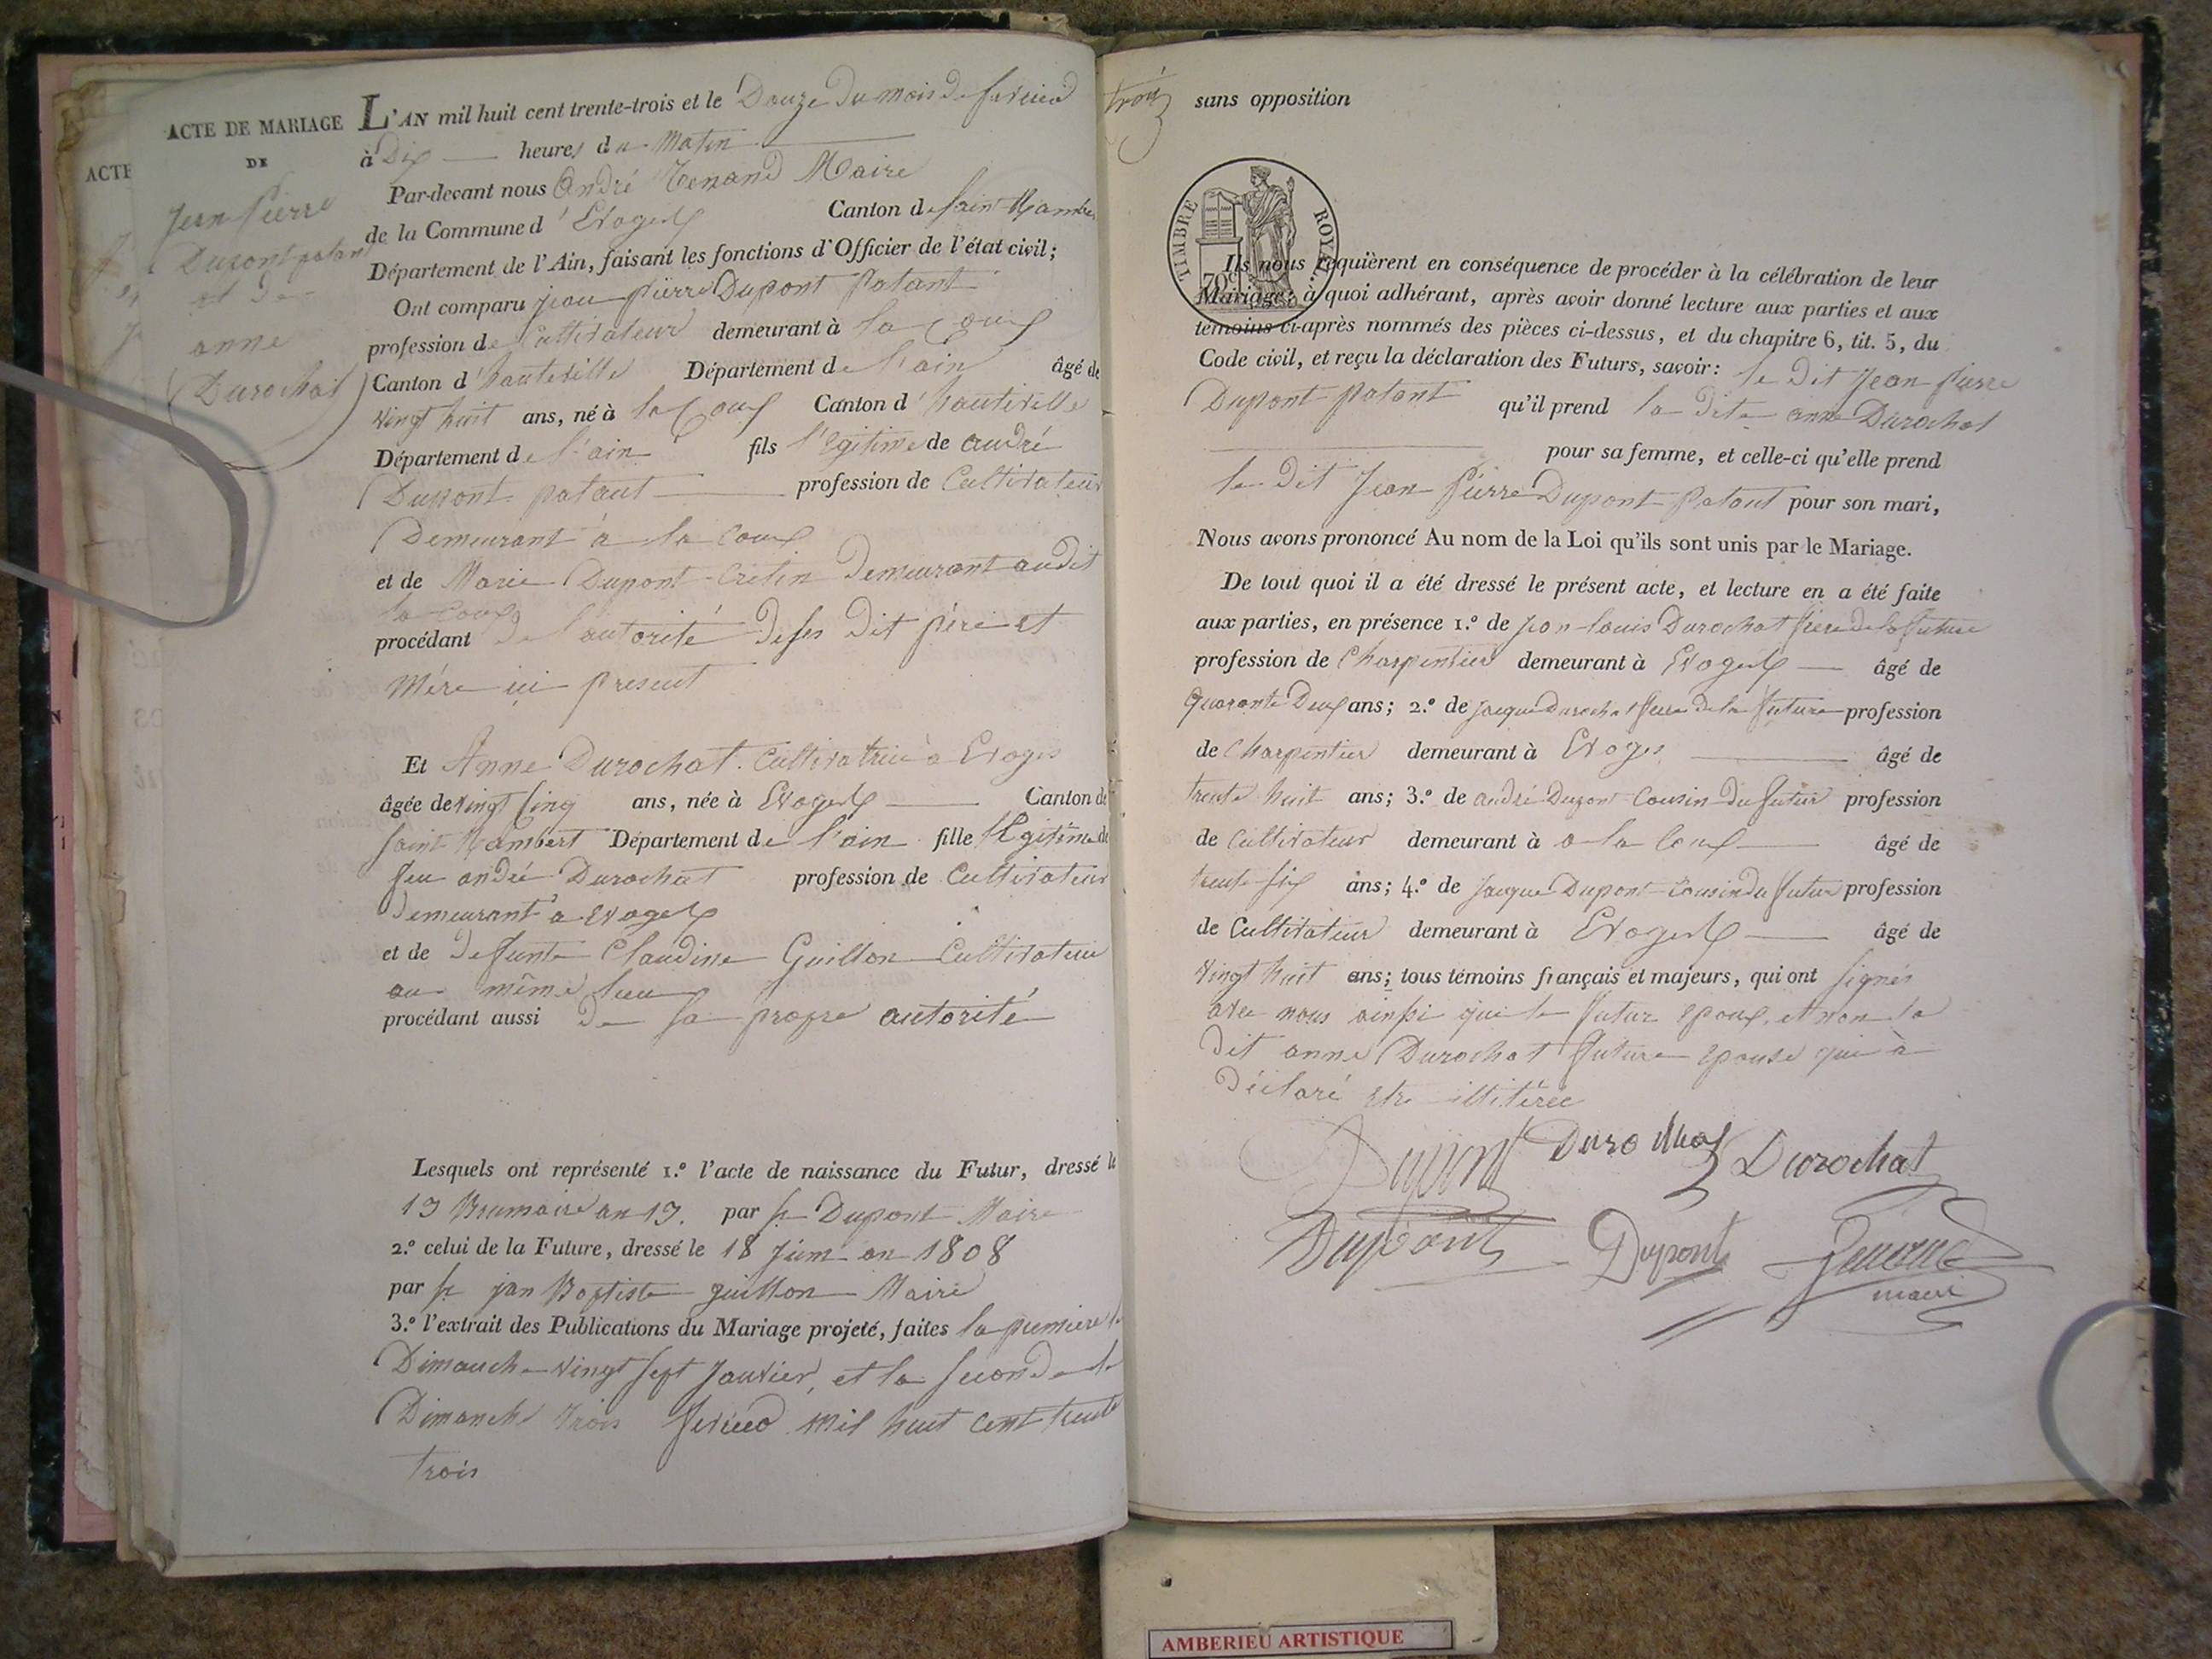 ACTE DE MARIAGE
DE
ACTE
Jean Pierre
Dupont patant
et de
anne
Durochat
L'AN mil huit cent trente-trois et le Douze du mois de fevrier
à Dix heures du Matin
Par-devant nous André Tenand Maire
de la Commune d'Evoges Canton de Saint Rambert
Département de l'Ain, faisant les fonctions d'Officier de l'état civil;
Ont comparu jean pierre Dupont Patant
profession de Cultivateur demeurant à la Coux
Canton d'hauteville Département de l'ain âgé de
vingt huit ans, né à la Coux Canton d'hauteville
Département de l'ain fils l'égitime de andré
Dupont patant profession de Cultivateur
Demeurant a la Coux
et de Marie Dupont-Cretin Demeurant audit
la Coux
procédant de l'autorité de ses dit pére et
Mére ici present
Et Anne Durochat Cultivatrice a Evoges
âgée de vingt cinq ans, née à Evoges Canton de
Saint Rambert Département de l'ain fille légitime de
feu andré Durochat profession de Cultivateur
Demeurant a Evoges
et de defunte Claudine Guillon Cultivateur
au même lieu
procédant aussi De sa propre autorité
Lesquels ont représenté 1.º l'acte de naissance du Futur, dressé le
13 Brumaire an 13. par Sr Dupont Maire
2.º celui de la Future, dressé le 18 juin an 1808
par Sr jan Baptiste guillon Maire
3.º l'extrait des Publications du Mariage projeté, faites la premiere le
Dimanche vingt sept Janvier, et la seconde le
Dimanche trois fevrier mil huit cent trente
trois
trois sans opposition
TIMBRE ROYAL
Ils nous requièrent en conséquence de procéder à la célébration de leur
Mariage; à quoi adhérant, après avoir donné lecture aux parties et aux
témoins ci-après nommés des pièces ci-dessus, et du chapitre 6, tit. 5, du
Code civil, et reçu la déclaration des Futurs, savoir: le Dit Jean pierre
Dupont patant qu'il prend la Dite anne Durochat
pour sa femme, et celle-ci qu'elle prend
le Dit Jean Pierre Dupont Patant pour son mari,
Nous avons prononcé Au nom de la Loi qu'ils sont unis par le Mariage.
De tout quoi il a été dressé le présent acte, et lecture en a été faite
aux parties, en présence 1.º de jean-louis Durochat frere de la future
profession de Charpentier demeurant à Evoges âgé de
quarante Deux ans; 2.º de jacque Durochat frere de la future profession
de Charpentier demeurant à Evoges âgé de
trente huit ans; 3.º de andré Dupont Cousin du futur profession
de Cultivateur demeurant à a la Coux âgé de
trente six ans; 4.º de jacque Dupont Cousin du futur profession
de Cultivateur demeurant à Evoges âgé de
vingt huit ans; tous témoins français et majeurs, qui ont signés
avec nous ainsi que le futur epoux, et non la
dit anne Durochat future epouse qui à
Déclaré etre illitérée
Dupont Durochat Durochat
Dupont Dupont Tenand
maire
AMBERIEU ARTISTIQUE